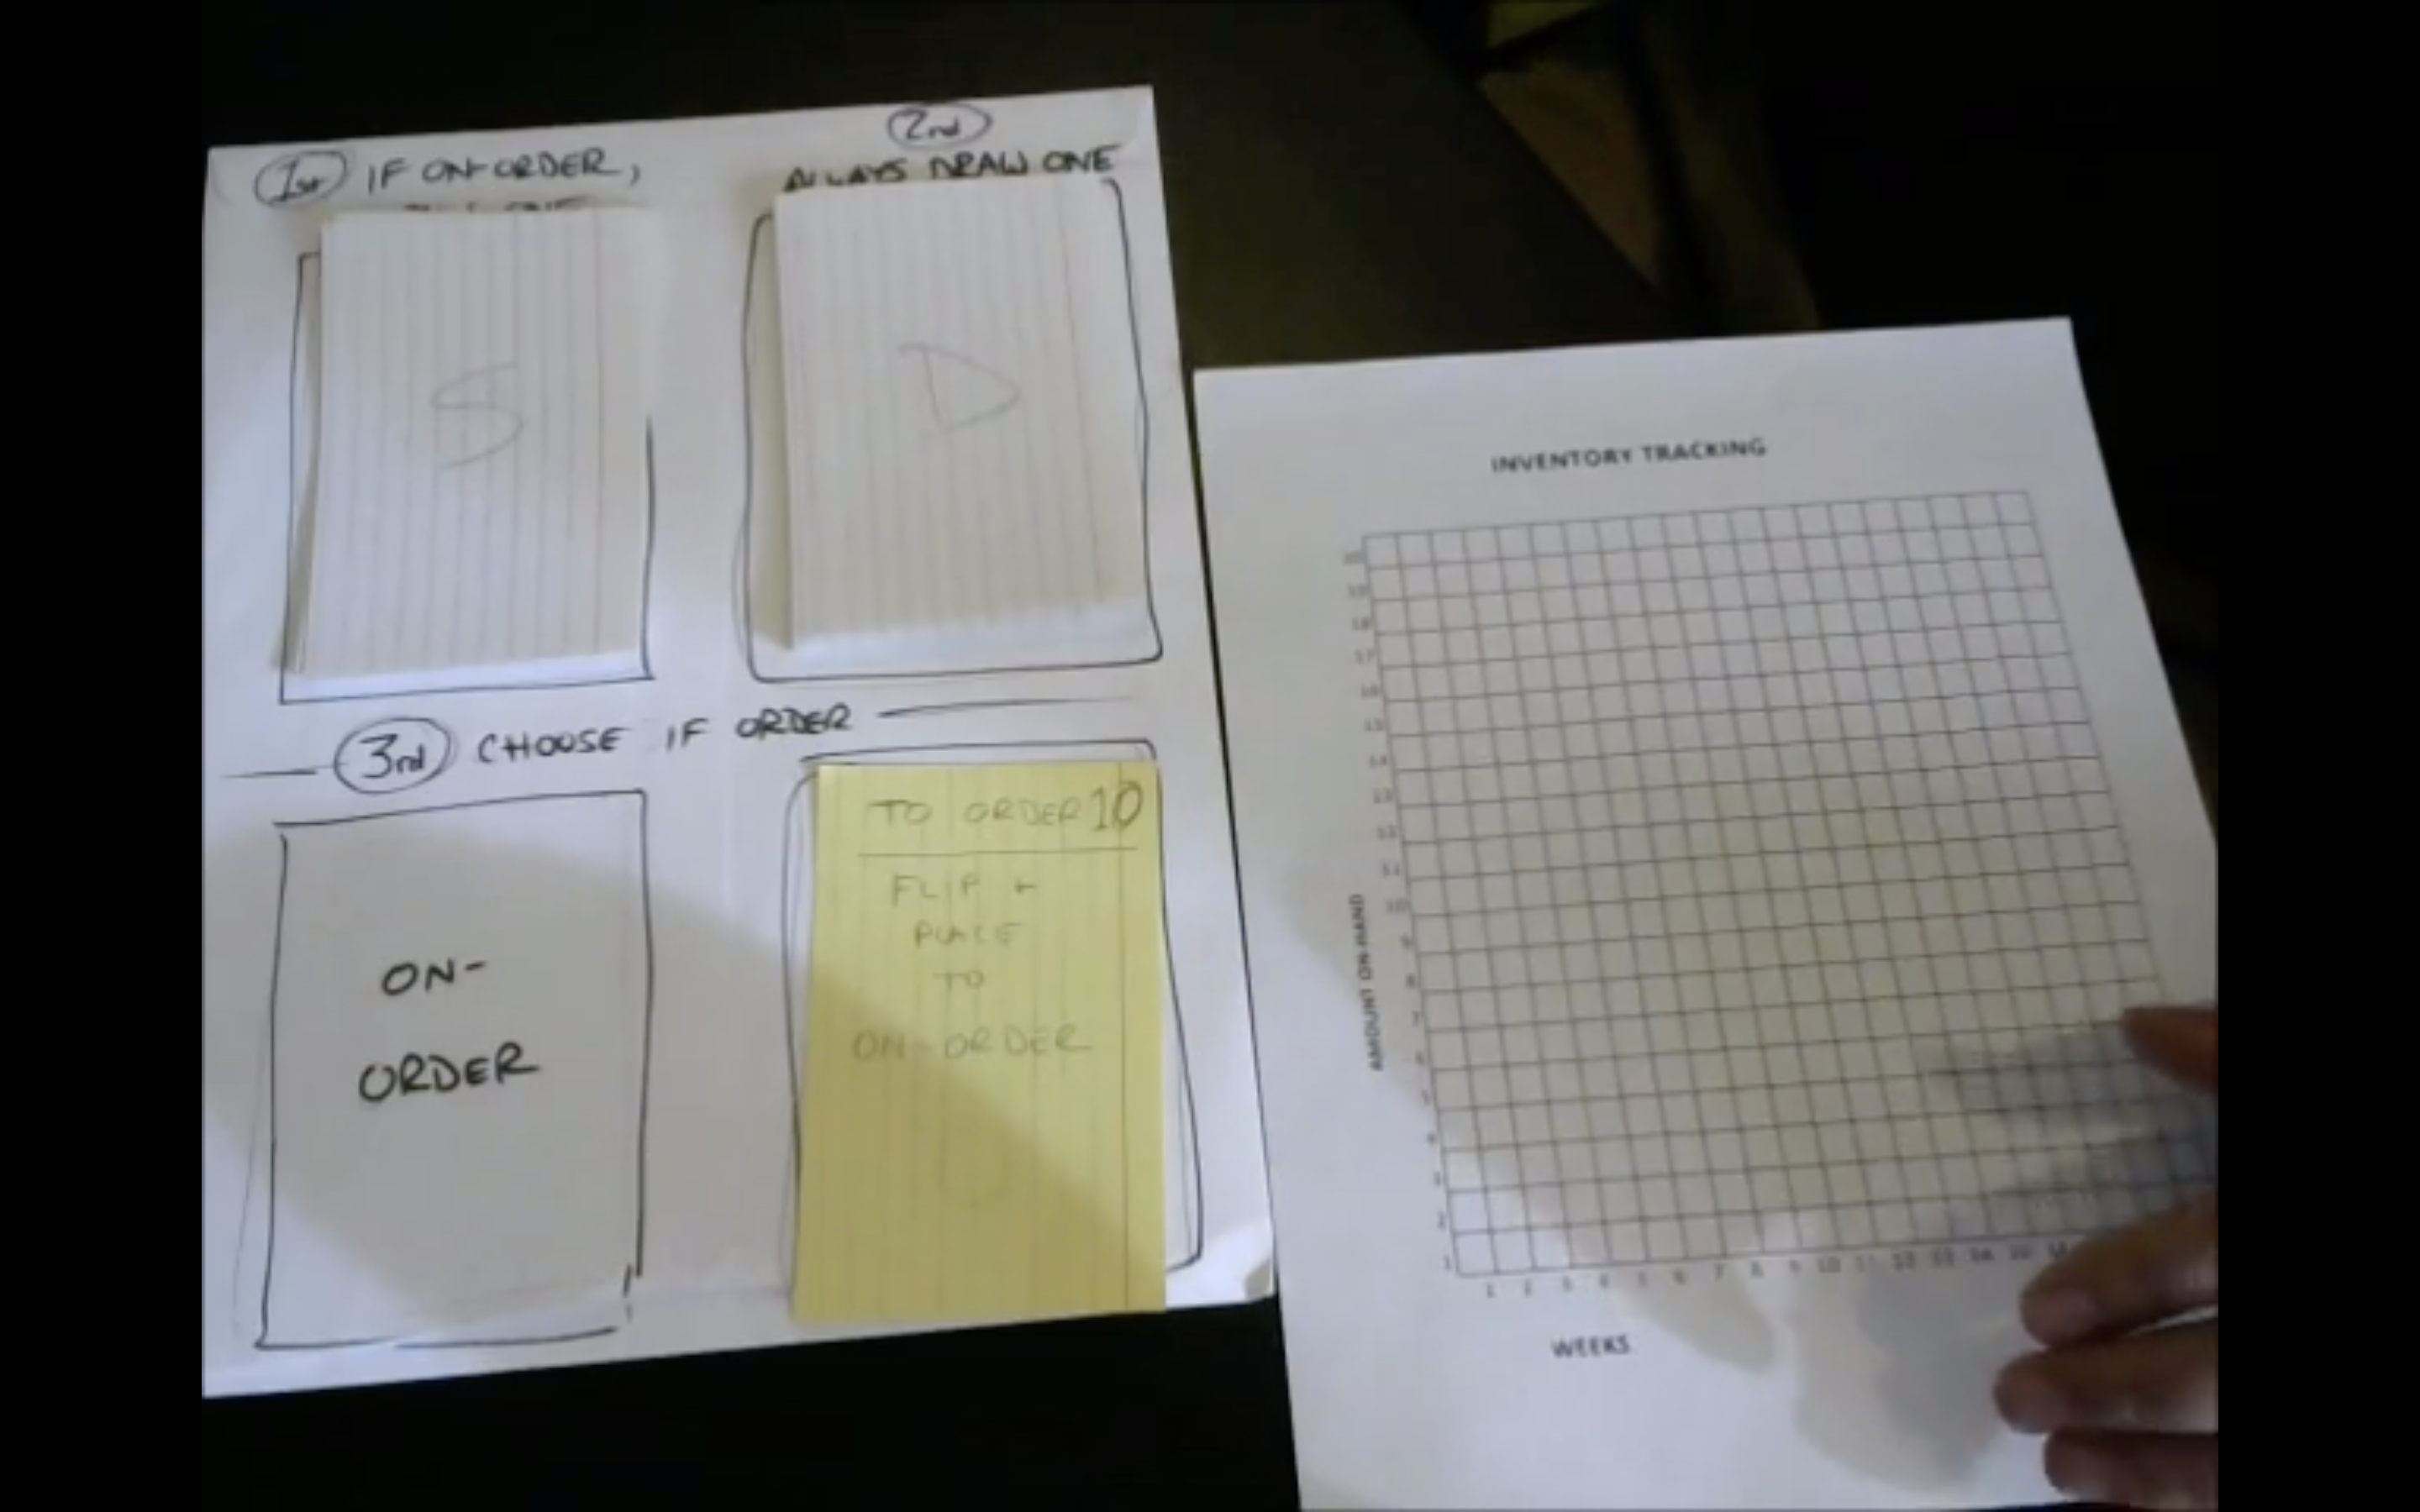 1st IF ON-ORDER,
2nd
ALWAYS DRAW ONE
S
D
3rd CHOOSE IF ORDER
ON-
ORDER
TO ORDER 10
FLIP +
PLACE
TO
ON-ORDER
INVENTORY TRACKING
AMOUNT ON-HAND
20
19
18
17
16
15
14
13
12
11
10
9
8
7
6
5
4
3
2
1
1 2 3 4 5 6 7 8 9 10 11 12 13 14 15
WEEKS